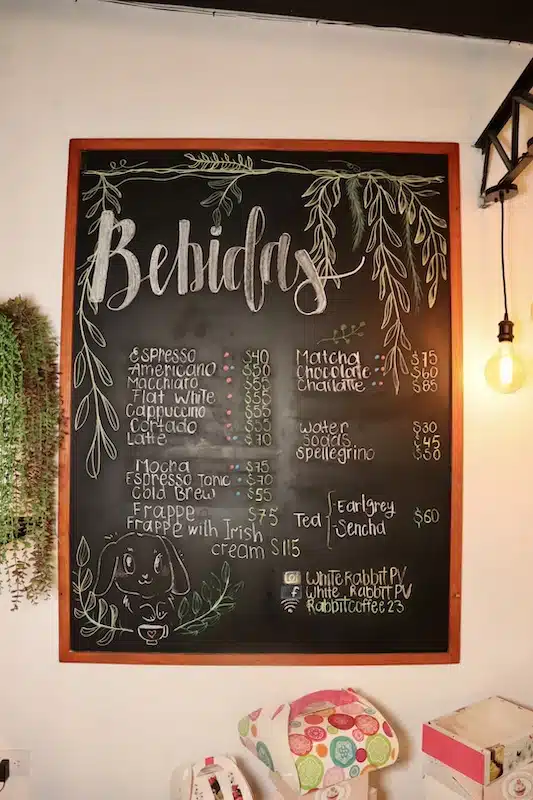 Bebidas
Espresso $40
Americano $50
Macchiato $55
Flat White $55
Cappuccino $55
Cortado $55
Latte $70
Mocha $75
Espresso Tonic $70
Cold Brew $55
Frappe $75
Frappe with Irish
cream $115
Matcha $75
Chocolate $60
Chailatte $85
Water $30
Sodas $45
Spellegrino $50
Tea Earlgrey
Sencha $60
WhiteRabbitPV
White RabbitPV
Rabbitcoffee23